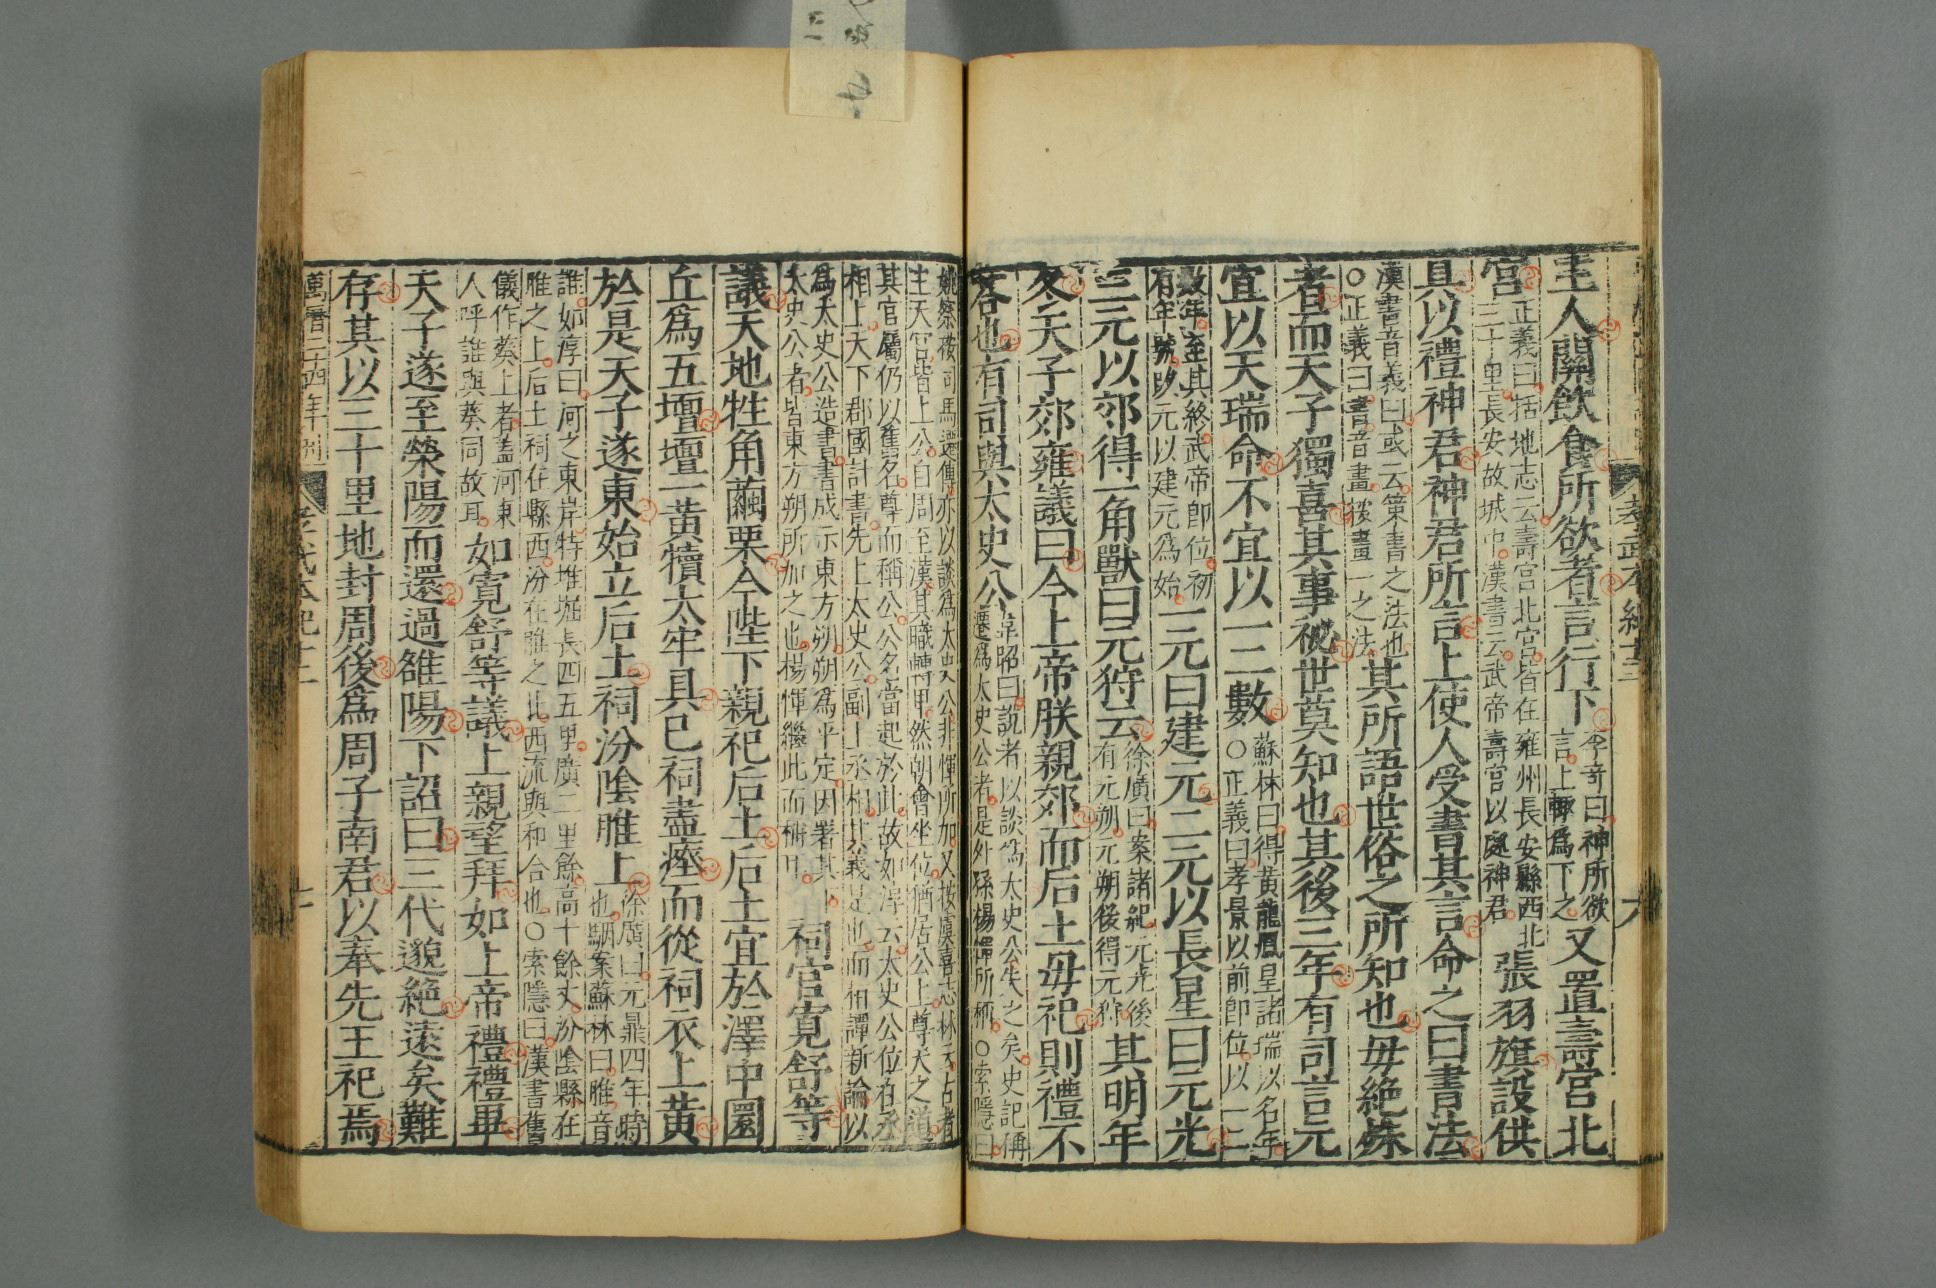 孝武本紀十二　六
主人關飲食所欲者言行下
李奇曰神所欲
言上輒爲下之
又置壽宮北
宮
正義曰括地志云壽宮北宮皆在雍州長安縣西北
三十里長安故城中漢書云武帝壽宮以處神君
張羽旗設供
具以禮神君神君所言上使人受書其言命之曰書法
漢書音義曰或云策書之法也
○正義曰書音畫按畫一之法
其所語世俗之所知也毋絶殊
者而天子獨喜其事祕世莫知也其後三年有司言元
宜以天瑞命不宜以一二數
蘇林曰得黃龍鳳皇諸瑞以名年
○正義曰孝景以前即位以一二
數年至其終武帝即位初
有年號改元以建元爲始
一元曰建元二元以長星曰元光
三元以郊得一角獸曰元狩云
徐廣曰案諸紀元光後
有元朔元朔後得元狩
其明年
冬天子郊雍議曰今上帝朕親郊而后土毋祀則禮不
荅也有司與太史公
韋昭曰説者以談爲太史公失之矣史記稱
遷爲太史公者是外孫楊惲所稱○索隱曰
姚察按司馬遷傳亦以談爲太史公非惲所加又按虞喜志林云古者
主天官皆上公自周至漢其職轉卑然朝會坐位猶居公上尊天之道
其官屬仍以舊名尊而稱公公名當起於此故如淳云太史公位在丞
相上天下郡國計書先上太史公副上丞相其義是也而桓譚新論以
爲太史公造書書成示東方朔朔爲平定因署其下
太史公者皆東方朔所加之也楊惲繼此而稱耳
祠官寬舒等
議天地牲角繭栗今陛下親祀后土后土宜於澤中圜
丘爲五壇壇一黃犢太牢具已祠盡瘞而從祠衣上黃
於是天子遂東始立后土祠汾陰脽上
徐廣曰元鼎四年時
也駰案蘇林曰脽音
誰如淳曰河之東岸特堆堀長四五里廣二里餘高十餘丈汾陰縣在
脽之上后土祠在縣西汾在脽之北西流與河合也○索隱曰漢書舊
儀作葵上者蓋河東
人呼誰與葵同故耳
如寬舒等議上親望拜如上帝禮禮畢
天子遂至滎陽而還過雒陽下詔曰三代邈絶遠矣難
存其以三十里地封周後爲周子南君以奉先王祀焉
萬曆二十四年刊　孝武本紀十二